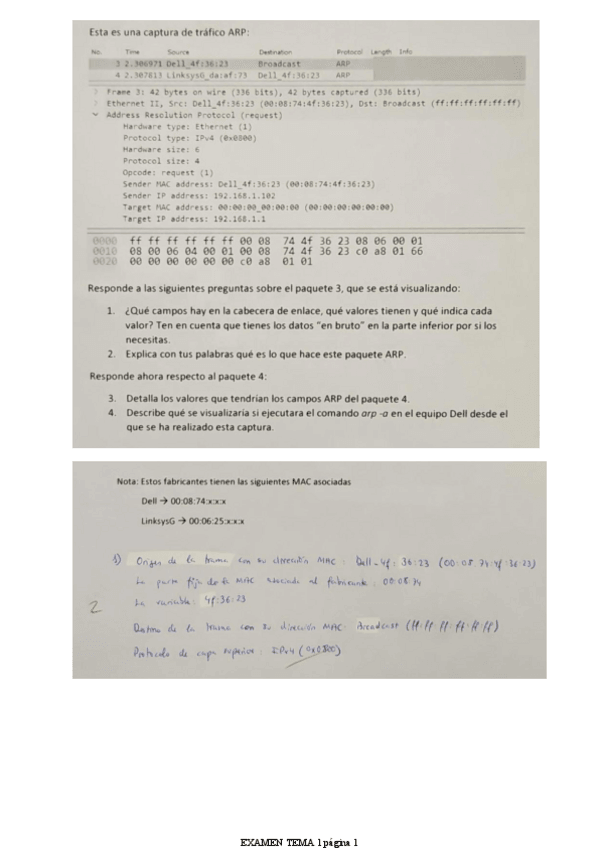 Esta es una captura de tráfico ARP:
No. Time Source Destination Protocol Length Info
3 2.306971 Dell_4f:36:23 Broadcast ARP
4 2.307813 LinksysG_da:af:73 Dell_4f:36:23 ARP
Frame 3: 42 bytes on wire (336 bits), 42 bytes captured (336 bits)
Ethernet II, Src: Dell_4f:36:23 (00:08:74:4f:36:23), Dst: Broadcast (ff:ff:ff:ff:ff:ff)
Address Resolution Protocol (request)
Hardware type: Ethernet (1)
Protocol type: IPv4 (0x0800)
Hardware size: 6
Protocol size: 4
Opcode: request (1)
Sender MAC address: Dell_4f:36:23 (00:08:74:4f:36:23)
Sender IP address: 192.168.1.102
Target MAC address: 00:00:00_00:00:00 (00:00:00:00:00:00)
Target IP address: 192.168.1.1
0000 ff ff ff ff ff ff 00 08 74 4f 36 23 08 06 00 01
0010 08 00 06 04 00 01 00 08 74 4f 36 23 c0 a8 01 66
0020 00 00 00 00 00 00 c0 a8 01 01
Responde a las siguientes preguntas sobre el paquete 3, que se está visualizando:
1. ¿Qué campos hay en la cabecera de enlace, qué valores tienen y qué indica cada
valor? Ten en cuenta que tienes los datos "en bruto" en la parte inferior por si los
necesitas.
2. Explica con tus palabras qué es lo que hace este paquete ARP.
Responde ahora respecto al paquete 4:
3. Detalla los valores que tendrían los campos ARP del paquete 4.
4. Describe qué se visualizaría si ejecutara el comando arp -a en el equipo Dell desde el
que se ha realizado esta captura.
Nota: Estos fabricantes tienen las siguientes MAC asociadas
Dell → 00:08:74:x:x:x
LinksysG → 00:06:25:x:x:x
1) Origen de la trama con su dirección MAC: Dell-4f:36:23 (00:08:74:4f:36:23)
La parte fija de la MAC asociada al fabricante: 00:08:74
La variable: 4f:36:23
2
Destino de la trama con su dirección MAC: Broadcast (ff:ff:ff:ff:ff:ff)
Protocolo de capa superior: IPv4 (0x0800)
EXAMEN TEMA 1página 1